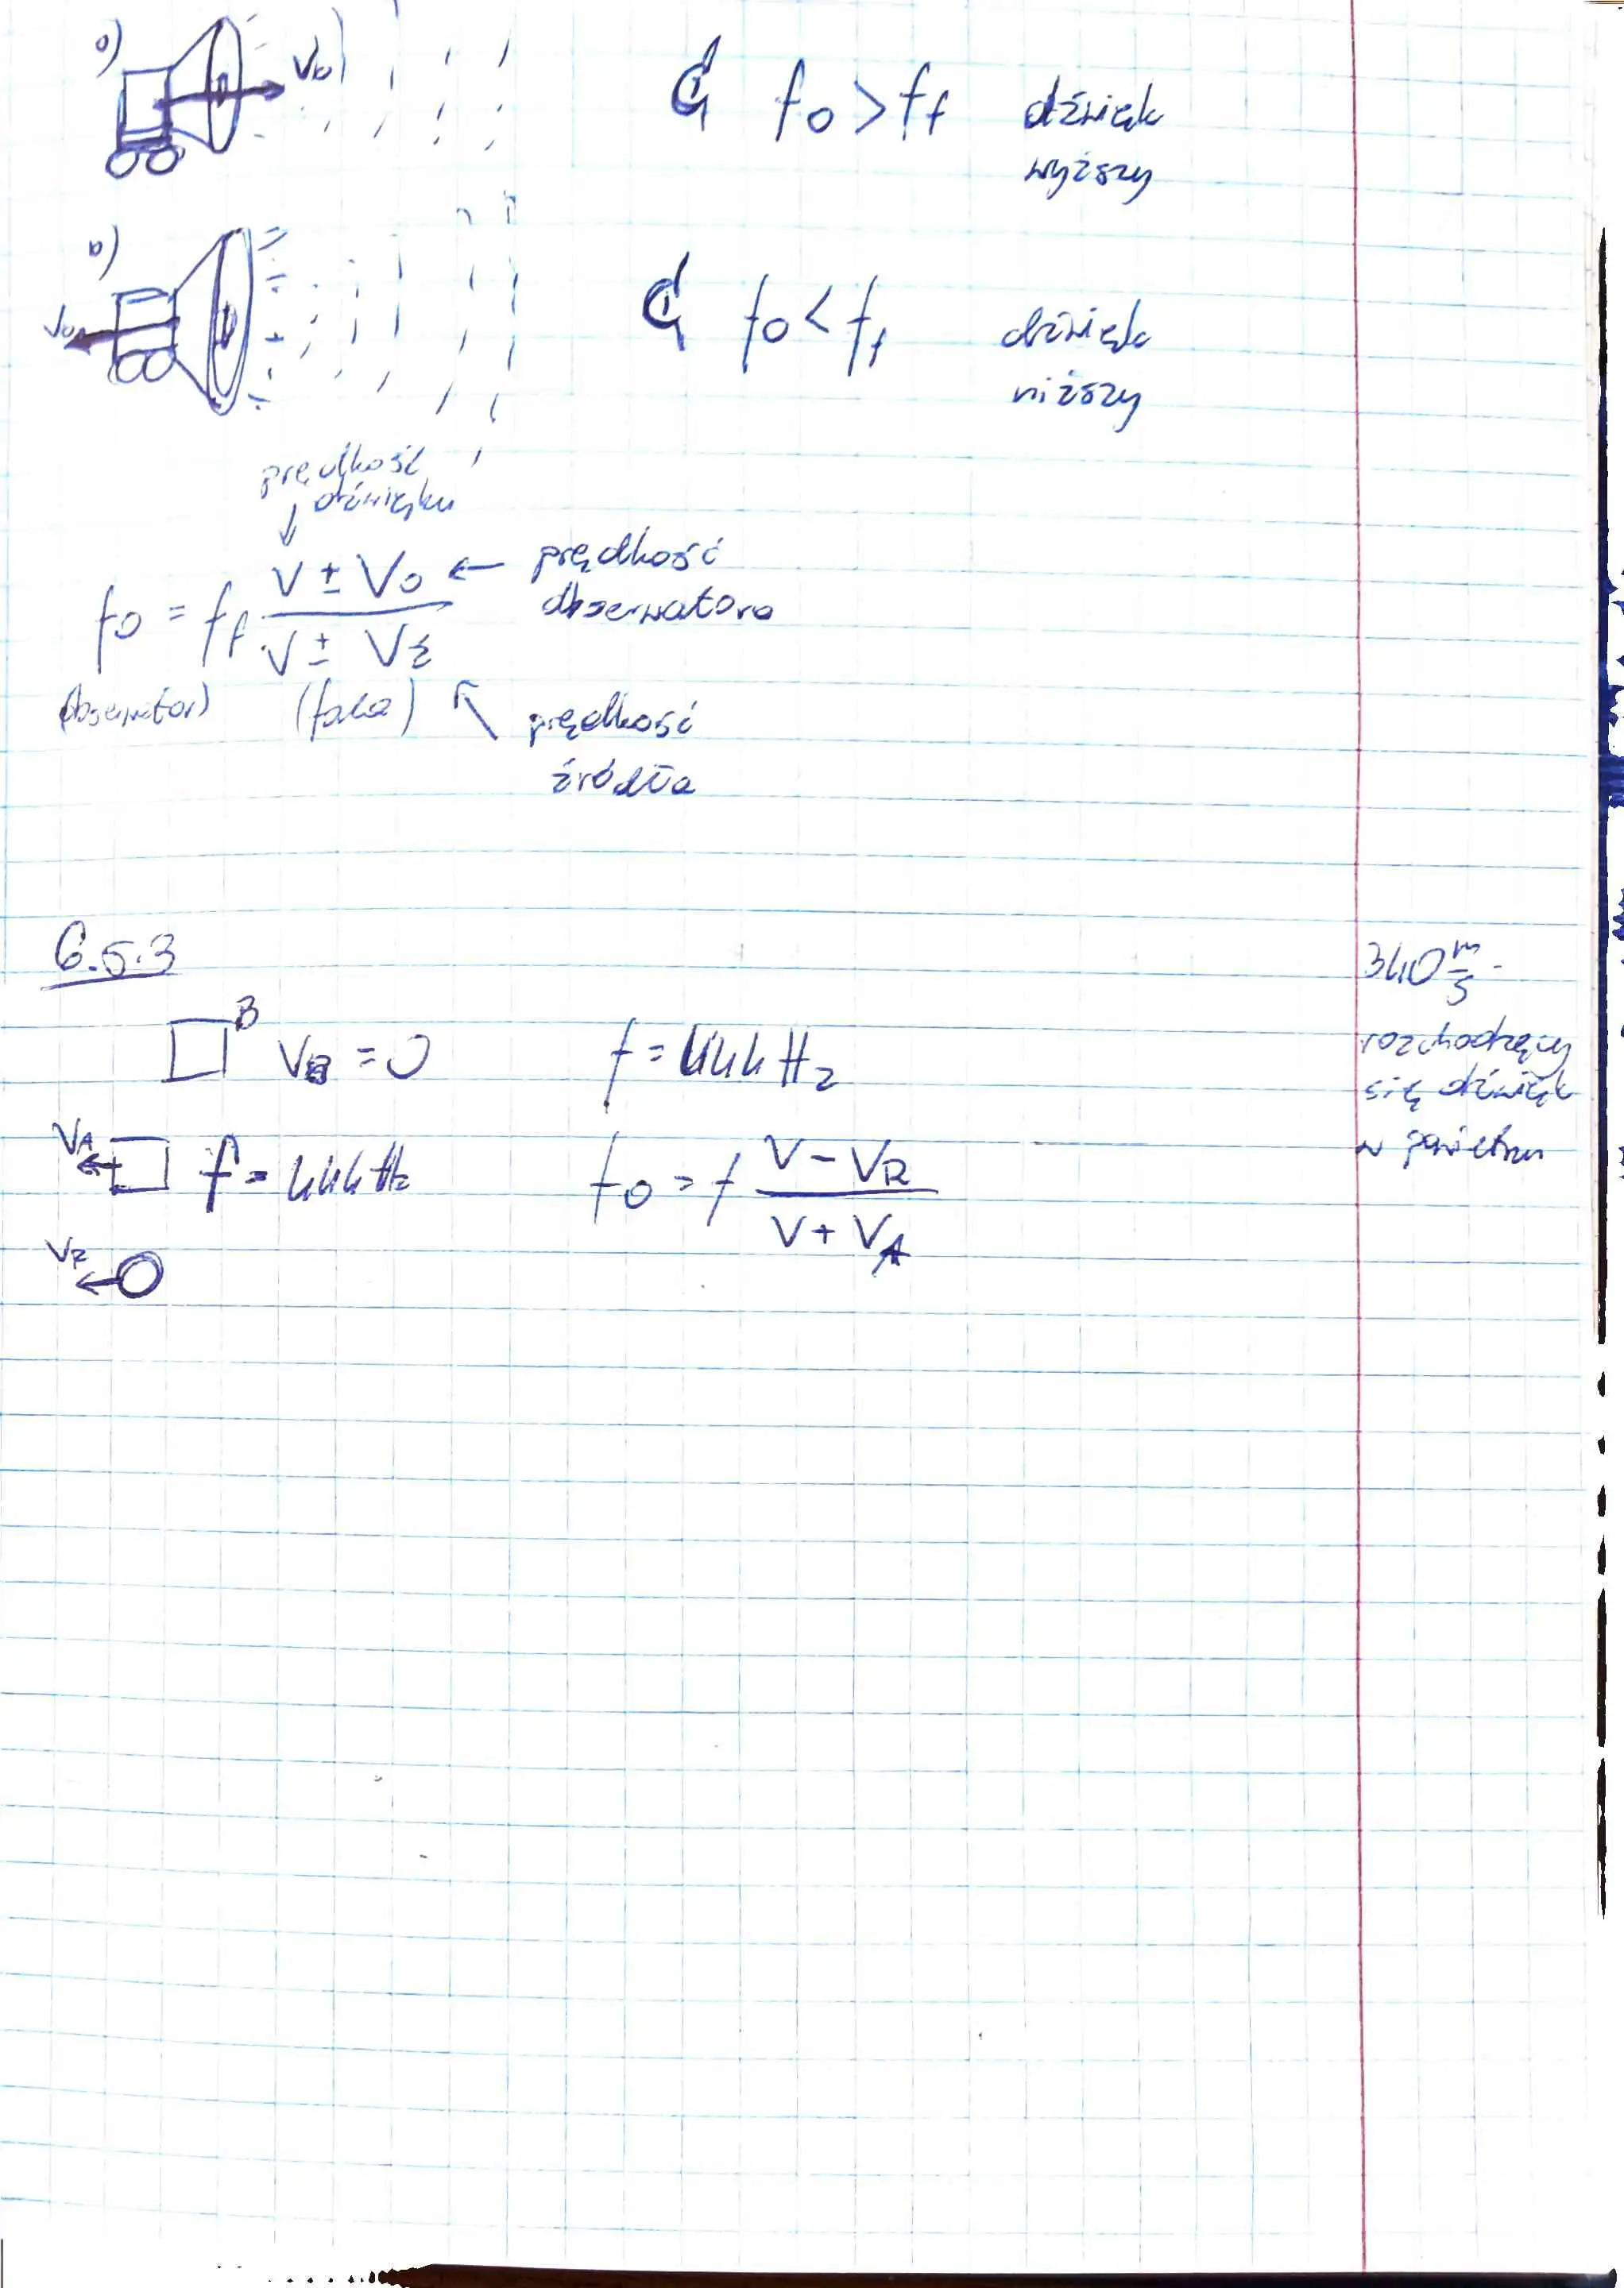 a)
f₀ > f_f dźwięk
wyższy
b)
f₀ < f_f dźwięk
niższy
prędkość
dźwięku
f₀ = f_f · (V ± V₀) / (V ± V_ź) ← prędkość
obserwatora
(obserwator) (fala) prędkość
źródła
6.5.3
B V_B = 0 f = 444 Hz
V_A f = 444 Hz f₀ = f (V - V_R) / (V + V_A)
V_R
340 m/s -
rozchodzący
się dźwięk
w powietrzu